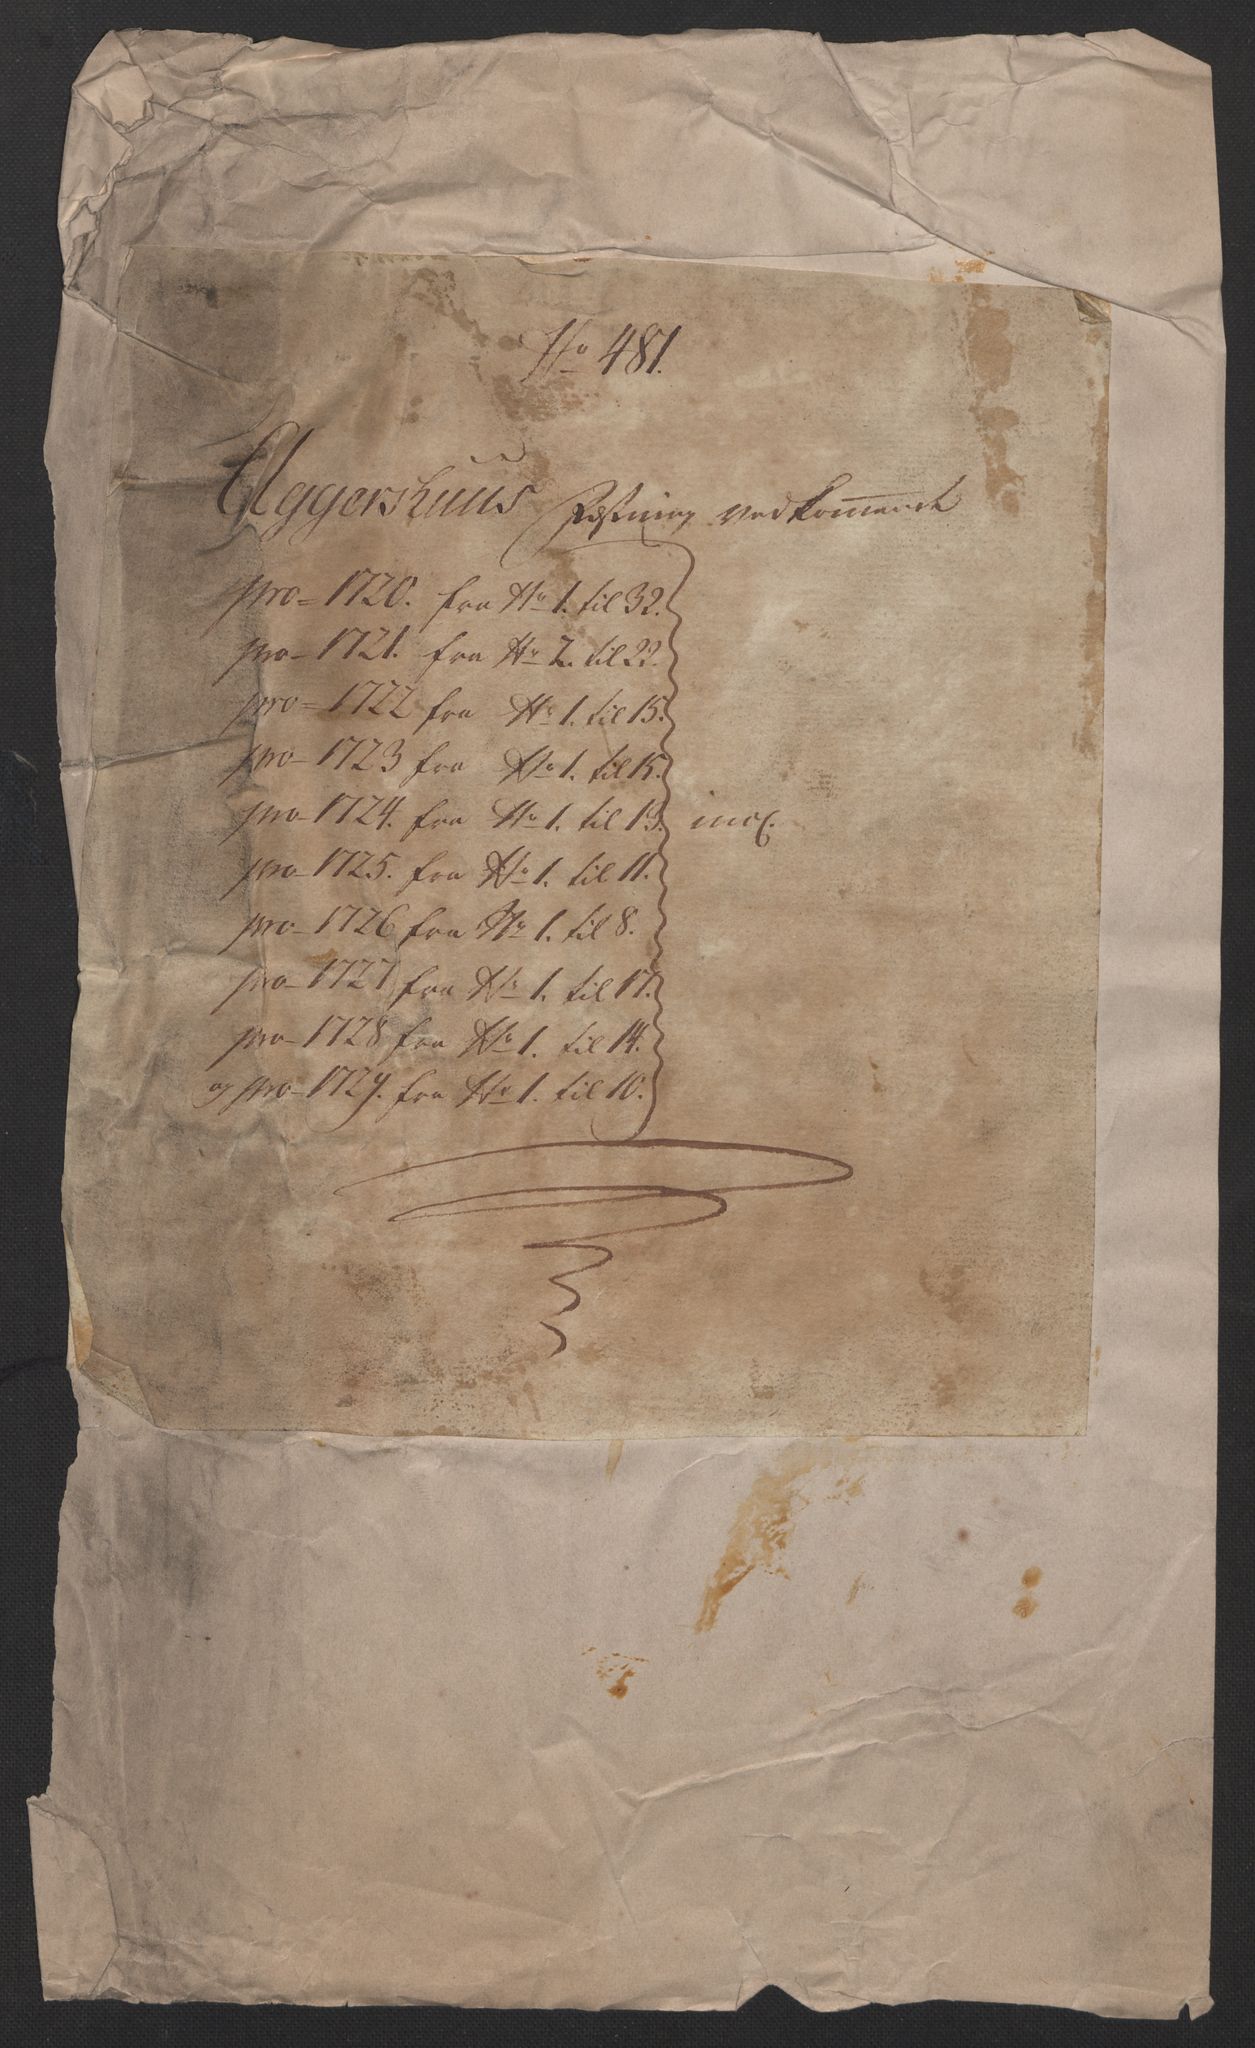 No 481.
Aggershuus Fæstning vedkommende
pro- 1720. fra No 1. til 32.
pro- 1721. fra No 2. til 22.
pro- 1722 fra No 1. til 15.
pro- 1723 fra No 1. til 15.
pro- 1724. fra No 1. til 13. incl.
pro- 1725. fra No 1. til 11.
pro- 1726 fra No 1. til 8.
pro- 1727 fra No 1. til 17.
pro- 1728 fra No 1. til 14.
og pro- 1729. fra No 1. til 10.